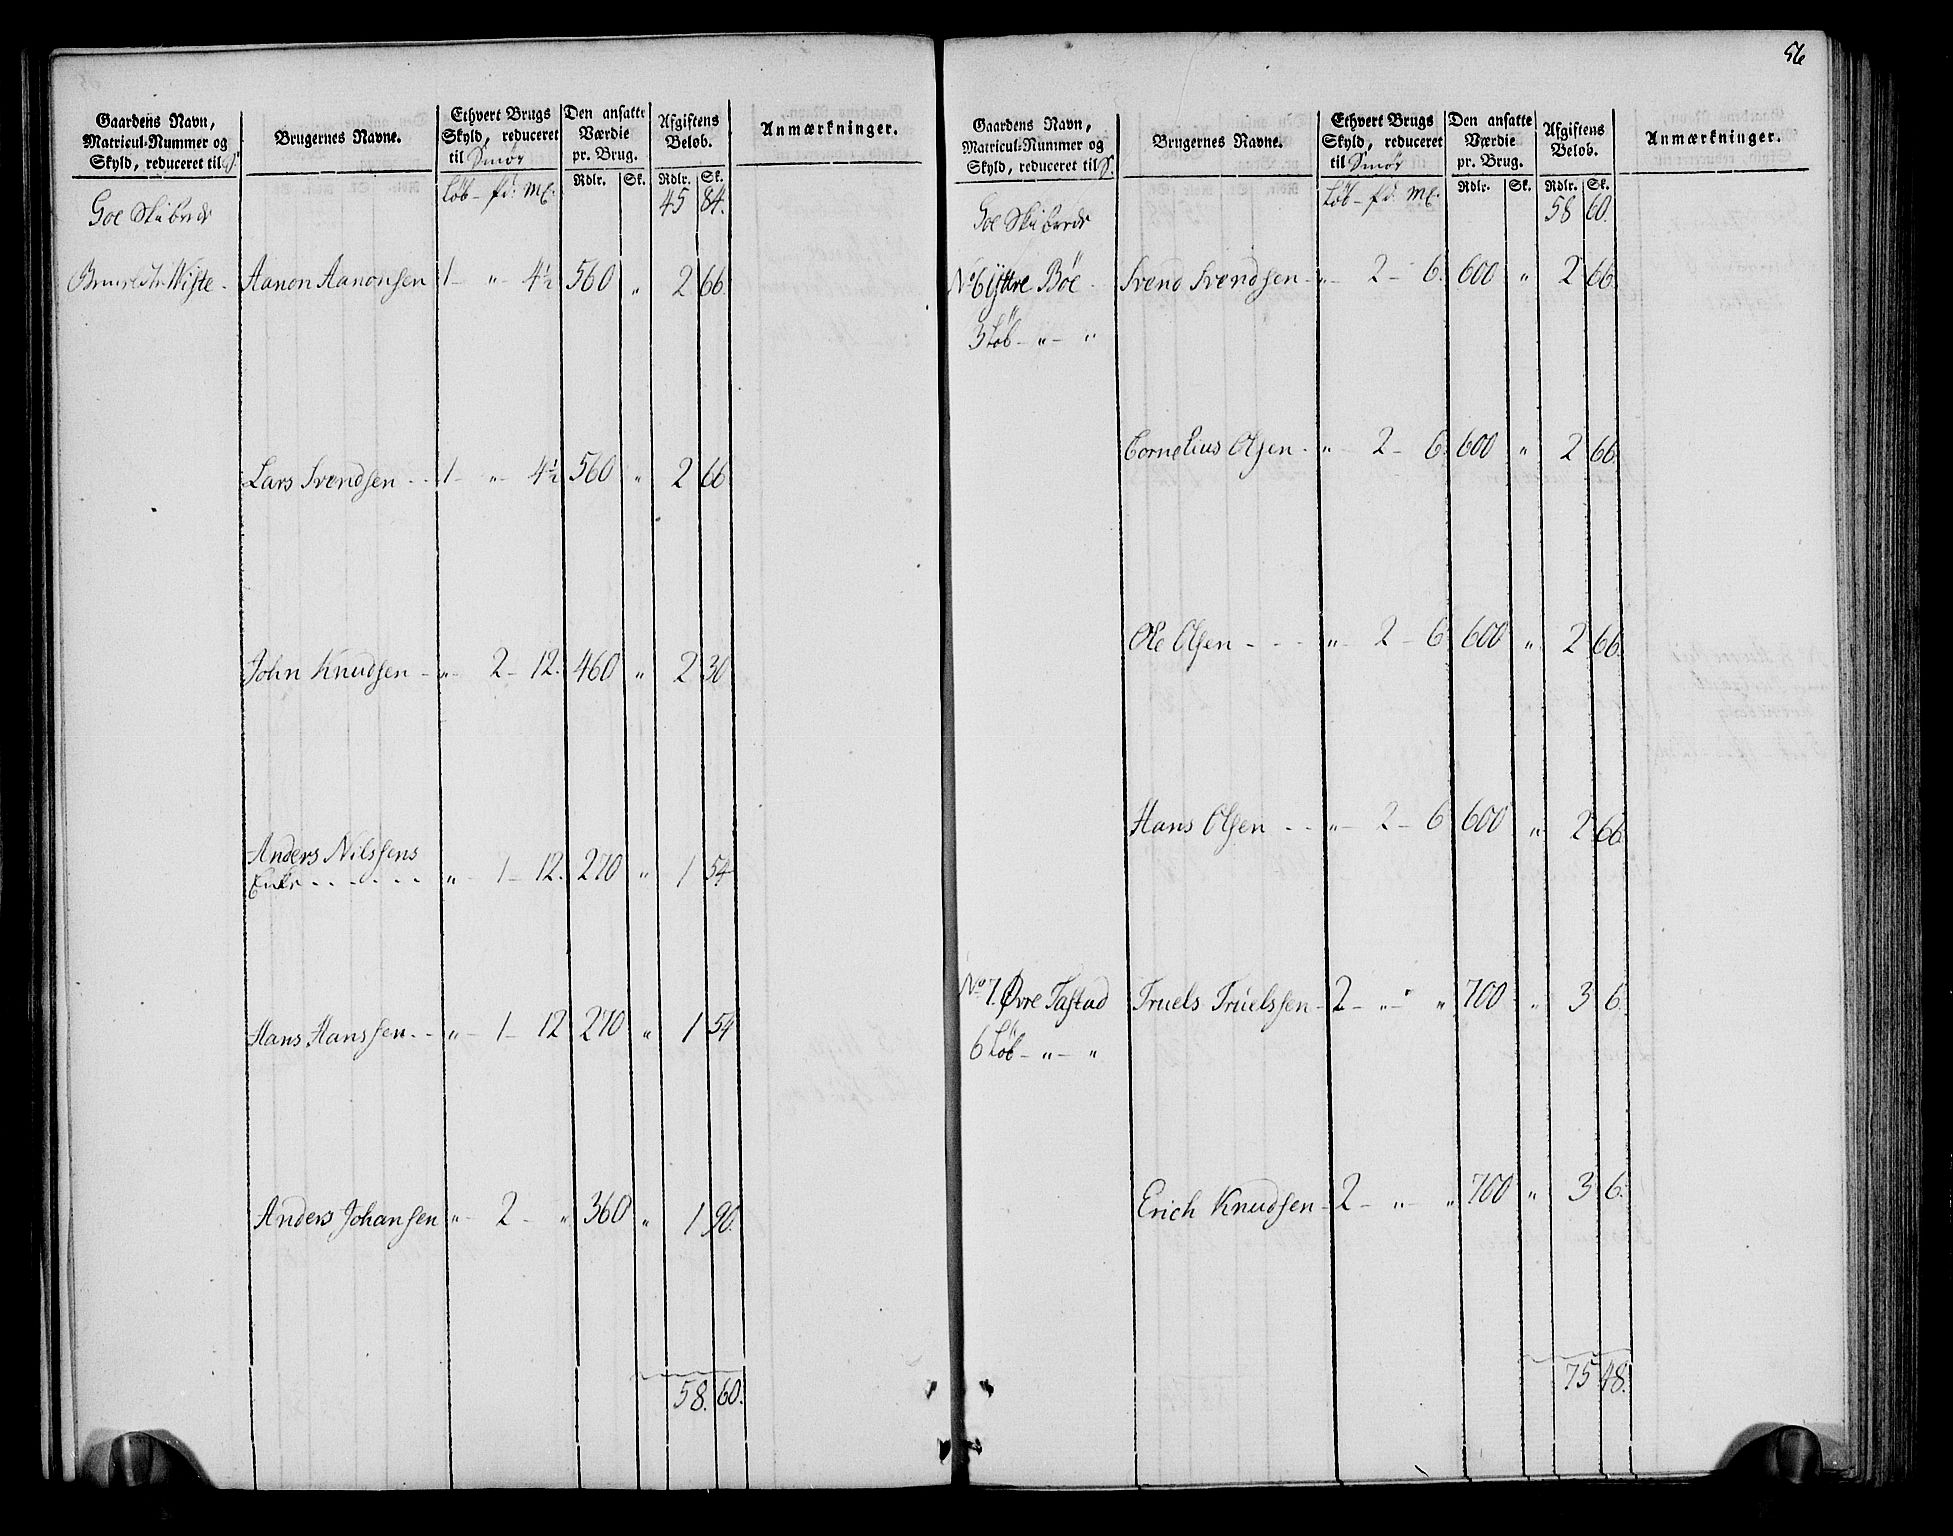 56
Gaardens Navn, Matricul-Nummer og Skyld, reduceret til S.
Brugernes Navne.
Ethvert Brugs Skyld, reduceret til Smör
Den ansatte Værdie pr. Brug.
Afgiftens Beløb.
Anmærkninger.
Löb - pd: mk: Rdlr. Sk. Rdlr. Sk.
Goe Skibrede 45 84.
Wiste - Aanon Aanonsen 1 - " - 4½ 560 " 2 66.
Lars Svendsen - - 1 - " - 4½ 560 " 2 66
John Knudsen - " - 2 - 12. 460 " 2 30
Anders Nilssens
Enke - - - - - " - 1 - 12. 270 " 1 54
Hans Hanssen - - " - 1 - 12 270 " 1 54
Anders Johansen " - 2 - " 360 " 1 90.
58. 60.
Gaardens Navn, Matricul-Nummer og Skyld, reduceret til S.
Brugernes Navne.
Ethvert Brugs Skyld, reduceret til Smör
Den ansatte Værdie pr. Brug.
Afgiftens Beløb.
Anmærkninger.
Löb - pd: mk: Rdlr. Sk. Rdlr. Sk.
Goe Skibrede 58 60.
No 6 Ÿttre Böe - Svend Svendsen - " - 2 - 6. 600 " 2 66.
3 Löb - " - "
Cornelius Olsen - " - 2 - 6. 600 " 2 66.
Ole Olsen - - - " - 2 - 6. 600 " 2 66.
Hans Olsen - - " - 2 - 6 600 " 2 66.
No 7. Øvre Tastad Truels Truelssen - 2 - " - " 700 " 3 6.
6 Löb - " - "
Erich Knudsen - 2 - " - " 700 " 3 6.
75 48.